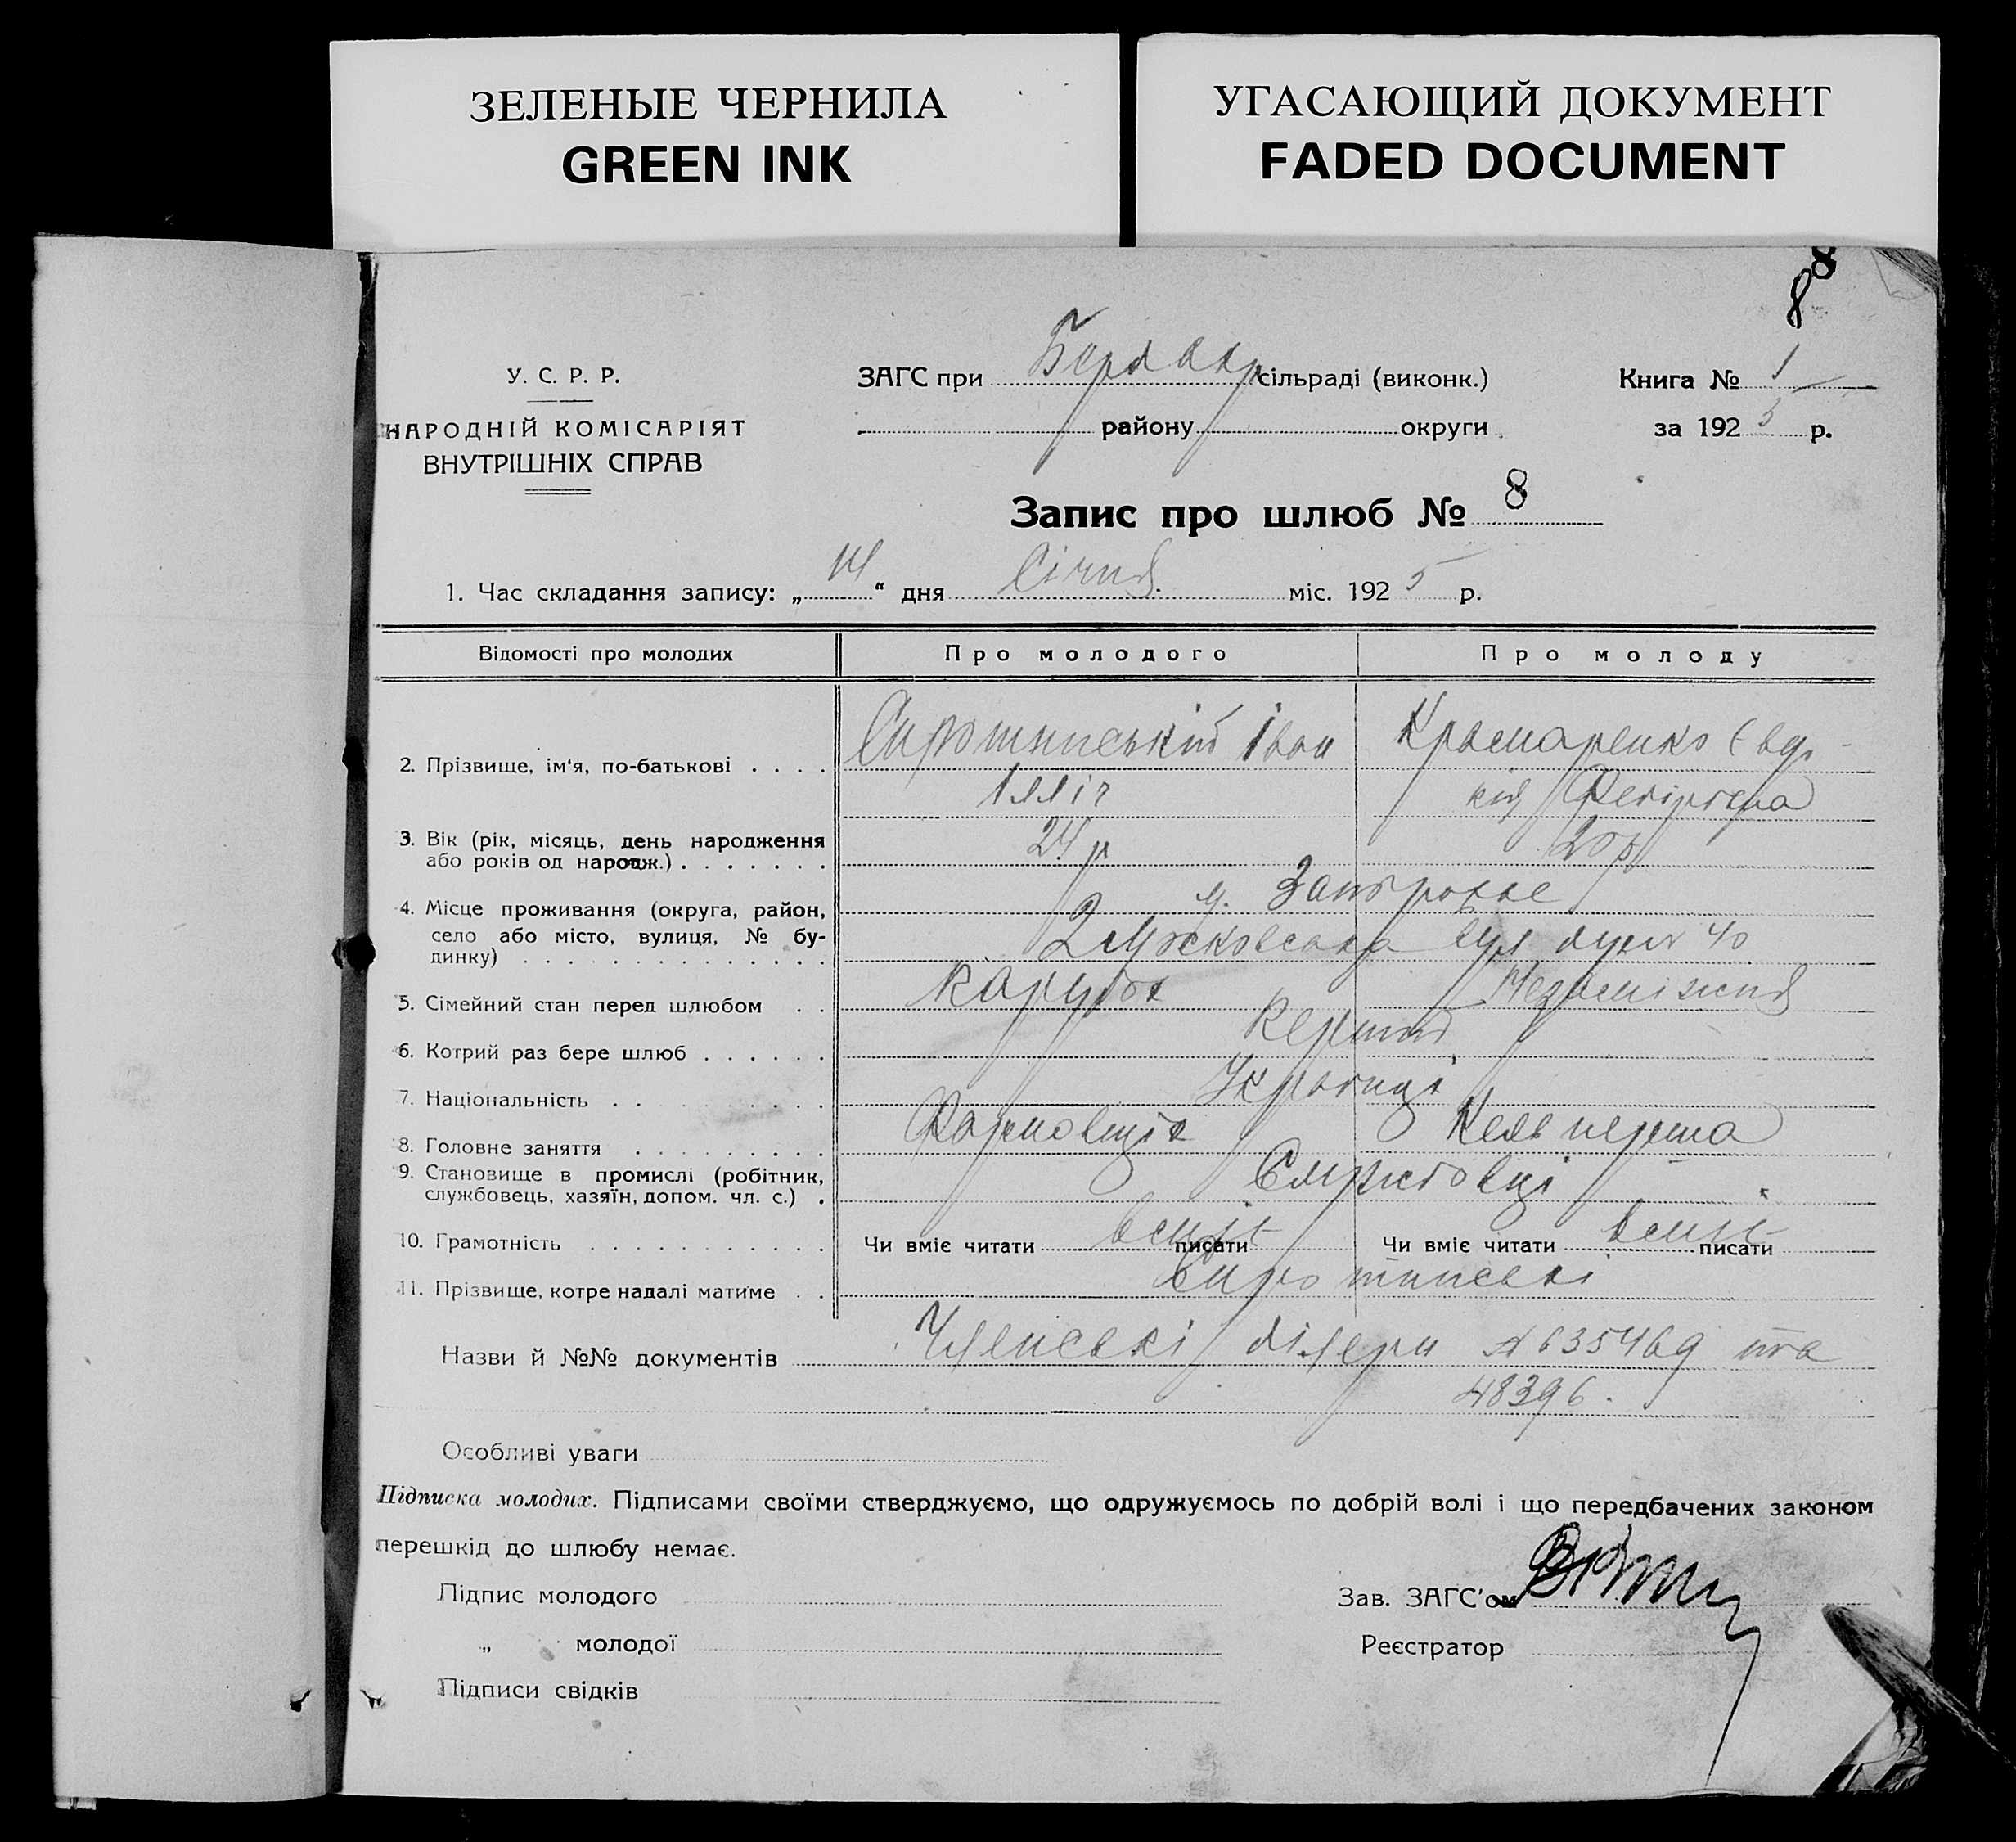 ЗЕЛЕНЫЕ ЧЕРНИЛА
GREEN INK
УГАСАЮЩИЙ ДОКУМЕНТ
FADED DOCUMENT
8
8
У. С. Р. Р.
НАРОДНІЙ КОМІСАРІЯТ
ВНУТРІШНІХ СПРАВ
ЗАГС при сільраді (виконк.)
району округи
Книга № 1
за 1925 р.
Запис про шлюб № 8
1. Час складання запису: „14“ дня Січня міс. 1925 р.
Відомості про молодих Про молодого Про молоду
2. Прізвище, ім'я, по-батькові . . . . Іван
Ілліч
3. Вік (рік, місяць, день народження
або років од народж.) . . . . . . . 24 р 20 р
4. Місце проживання (округа, район, м. Запоріжжє
село або місто, вулиця, № бу- вул 40
динку) . . . . . . . . . . . . . .
5. Сімейний стан перед шлюбом . . Парубок Незаміжня
6. Котрий раз бере шлюб . . . . . . Перший
7. Національність . . . . . . . . . Українці
8. Головне заняття . . . . . . . . .
9. Становище в промислі (робітник,
службовець, хазяїн, допом. чл. с.) .
10. Грамотність . . . . . . . . . . . Чи вміє читати вміє писати Чи вміє читати вміє писати
11. Прізвище, котре надалі матиме . .
Назви й №№ документів Членські білети № 635469 та
48396.
Особливі уваги
Підписка молодих. Підписами своїми стверджуємо, що одружуємось по добрій волі і що передбачених законом
перешкід до шлюбу немає.
Підпис молодого
„ молодої
Підписи свідків
Зав. ЗАГС'ом
Реєстратор